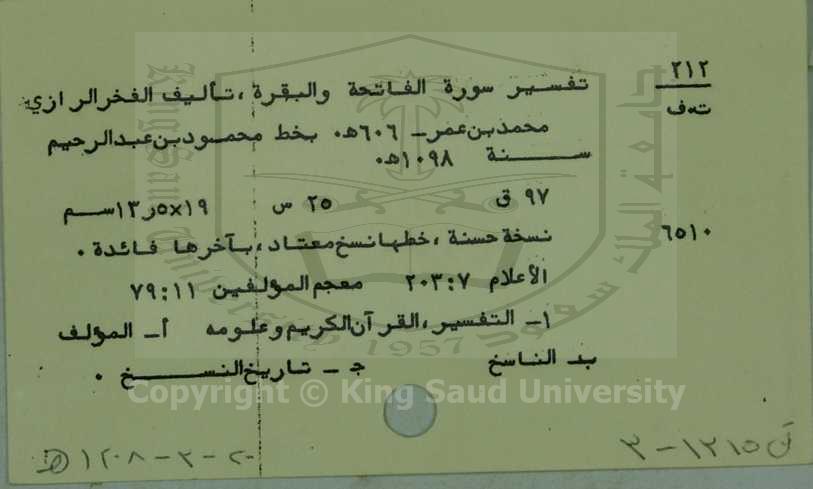 ٢١٢
ت٠ف
تفسير سورة الفاتحة والبقرة ، تأليف الفخر الرازي،
محمد بن عمر ــ ٦٠٦هـ٠ بخط محمود بن عبدالرحيم
سنة ١٠٩٨هـ٠
٩٧ ق ٢٥ س ١٩×٥ر١٣سم
٦٥١٠ نسخة حسنة ، خطها نسخ معتاد ، بآخرها فائدة ٠
الأعلام ٧:٢٠٣ معجم المؤلفين ١١:٧٩
١ـ التفسير ، القرآن الكريم وعلومه أـ المؤلف
بـ الناسخ جـ ـ تاريخ النسخ ٠
Copyright © King Saud University
ف ١٢١٥ - ٣
1957